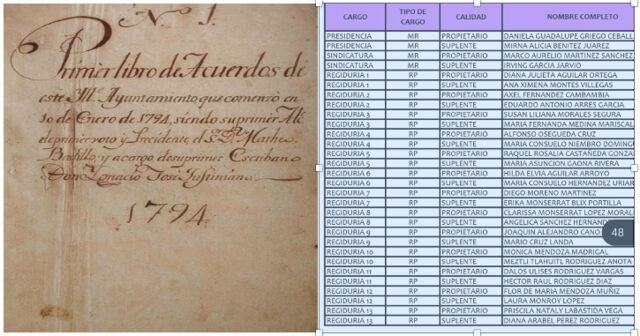 N.º 1.
Primer libro de Acuerdos de
este Ayuntamiento que comenzó en
10 de Enero de 1794, siendo su primer
de primer voto y Presidente el S. D. Matheo
Badillo, y a cargo de su primer Escribano
Don Ignacio Jose
1794.
CARGO TIPO DE CARGO CALIDAD NOMBRE COMPLETO
PRESIDENCIA MR PROPIETARIO DANIELA GUADALUPE GRIEGO CEBALL
PRESIDENCIA MR SUPLENTE MIRNA ALICIA BENITEZ JUAREZ
SINDICATURA MR PROPIETARIO MARCO AURELIO MARTINEZ SANCHEZ
SINDICATURA MR SUPLENTE IRVING GARCIA JARVIO
REGIDURIA 1 RP PROPIETARIO DIANA JULIETA AGUILAR ORTEGA
REGIDURIA 1 RP SUPLENTE ANA XIMENA MONTES VILLEGAS
REGIDURIA 2 RP PROPIETARIO AXEL FERNANDEZ CAMBAMBIA
REGIDURIA 2 RP SUPLENTE EDUARDO ANTONIO ARRES GARCIA
REGIDURIA 3 RP PROPIETARIO SUSAN LILIANA MORALES SEGURA
REGIDURIA 3 RP SUPLENTE MARIA FERNANDA MEDINA MARISCAL
REGIDURIA 4 RP PROPIETARIO ALFONSO OSEGUEDA CRUZ
REGIDURIA 4 RP SUPLENTE MARIA CONSUELO NIEMBRO DOMING
REGIDURIA 5 RP PROPIETARIO RAQUEL ROSALIA CASTAÑEDA GONZA
REGIDURIA 5 RP SUPLENTE MARIA ASUNCION GAONA RIVERA
REGIDURIA 6 RP PROPIETARIO HILDA ELVIA AGUILAR ARROYO
REGIDURIA 6 RP SUPLENTE MARIA CONSUELO HERNANDEZ URIAR
REGIDURIA 7 RP PROPIETARIO DIEGO MORENO MARTINEZ
REGIDURIA 7 RP SUPLENTE ERIKA MONSERRAT BLIX PORTILLA
REGIDURIA 8 RP PROPIETARIO CLARISSA MONSERRAT LOPEZ MORAL
REGIDURIA 8 RP SUPLENTE ANGELICA SANCHEZ HERNAND
REGIDURIA 9 RP PROPIETARIO JOAQUIN ALEJANDRO CANO
48
REGIDURIA 9 RP SUPLENTE MARIO CRUZ LANDA
REGIDURIA 10 RP PROPIETARIO MONICA MENDOZA MADRIGAL
REGIDURIA 10 RP SUPLENTE MEZTLI TLAHUITL RODRIGUEZ ANOTA
REGIDURIA 11 RP PROPIETARIO DALOS ULISES RODRIGUEZ VARGAS
REGIDURIA 11 RP SUPLENTE HECTOR RAUL RODRIGUEZ DIAZ
REGIDURIA 12 RP PROPIETARIO FLOR DE MARIA MENDOZA MUÑIZ
REGIDURIA 12 RP SUPLENTE LAURA MONROY LOPEZ
REGIDURIA 13 RP PROPIETARIO PRISCILA NATALY LABASTIDA VEGA
REGIDURIA 13 RP SUPLENTE DIANA ARABEL PEREZ RODRIGUEZ